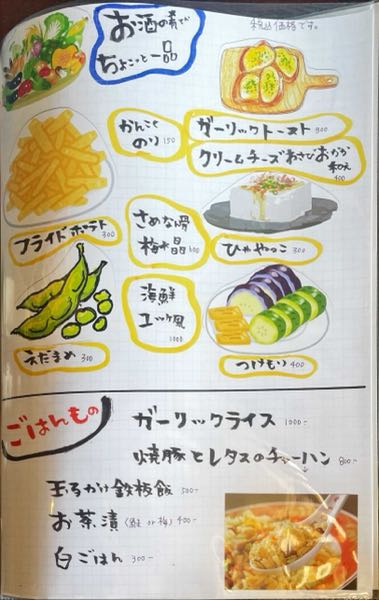 お酒の肴でか
ちょこっと一品
税込価格です。
かんこく
のり 150
ガーリックトースト 300
クリームチーズわさびおかか
和え
400
フライドポテト 300
さめなん骨
梅水晶 600
ひややっこ 300
海鮮
ユッケ風
1000
えだまめ 300
つけもり 400
ごはんもの
ガーリックライス 1000-
焼豚とレタスのチャーハン 800-
玉子かけ鉄板飯 500-
お茶漬 (鮭 or 梅) 400-
白ごはん 300-